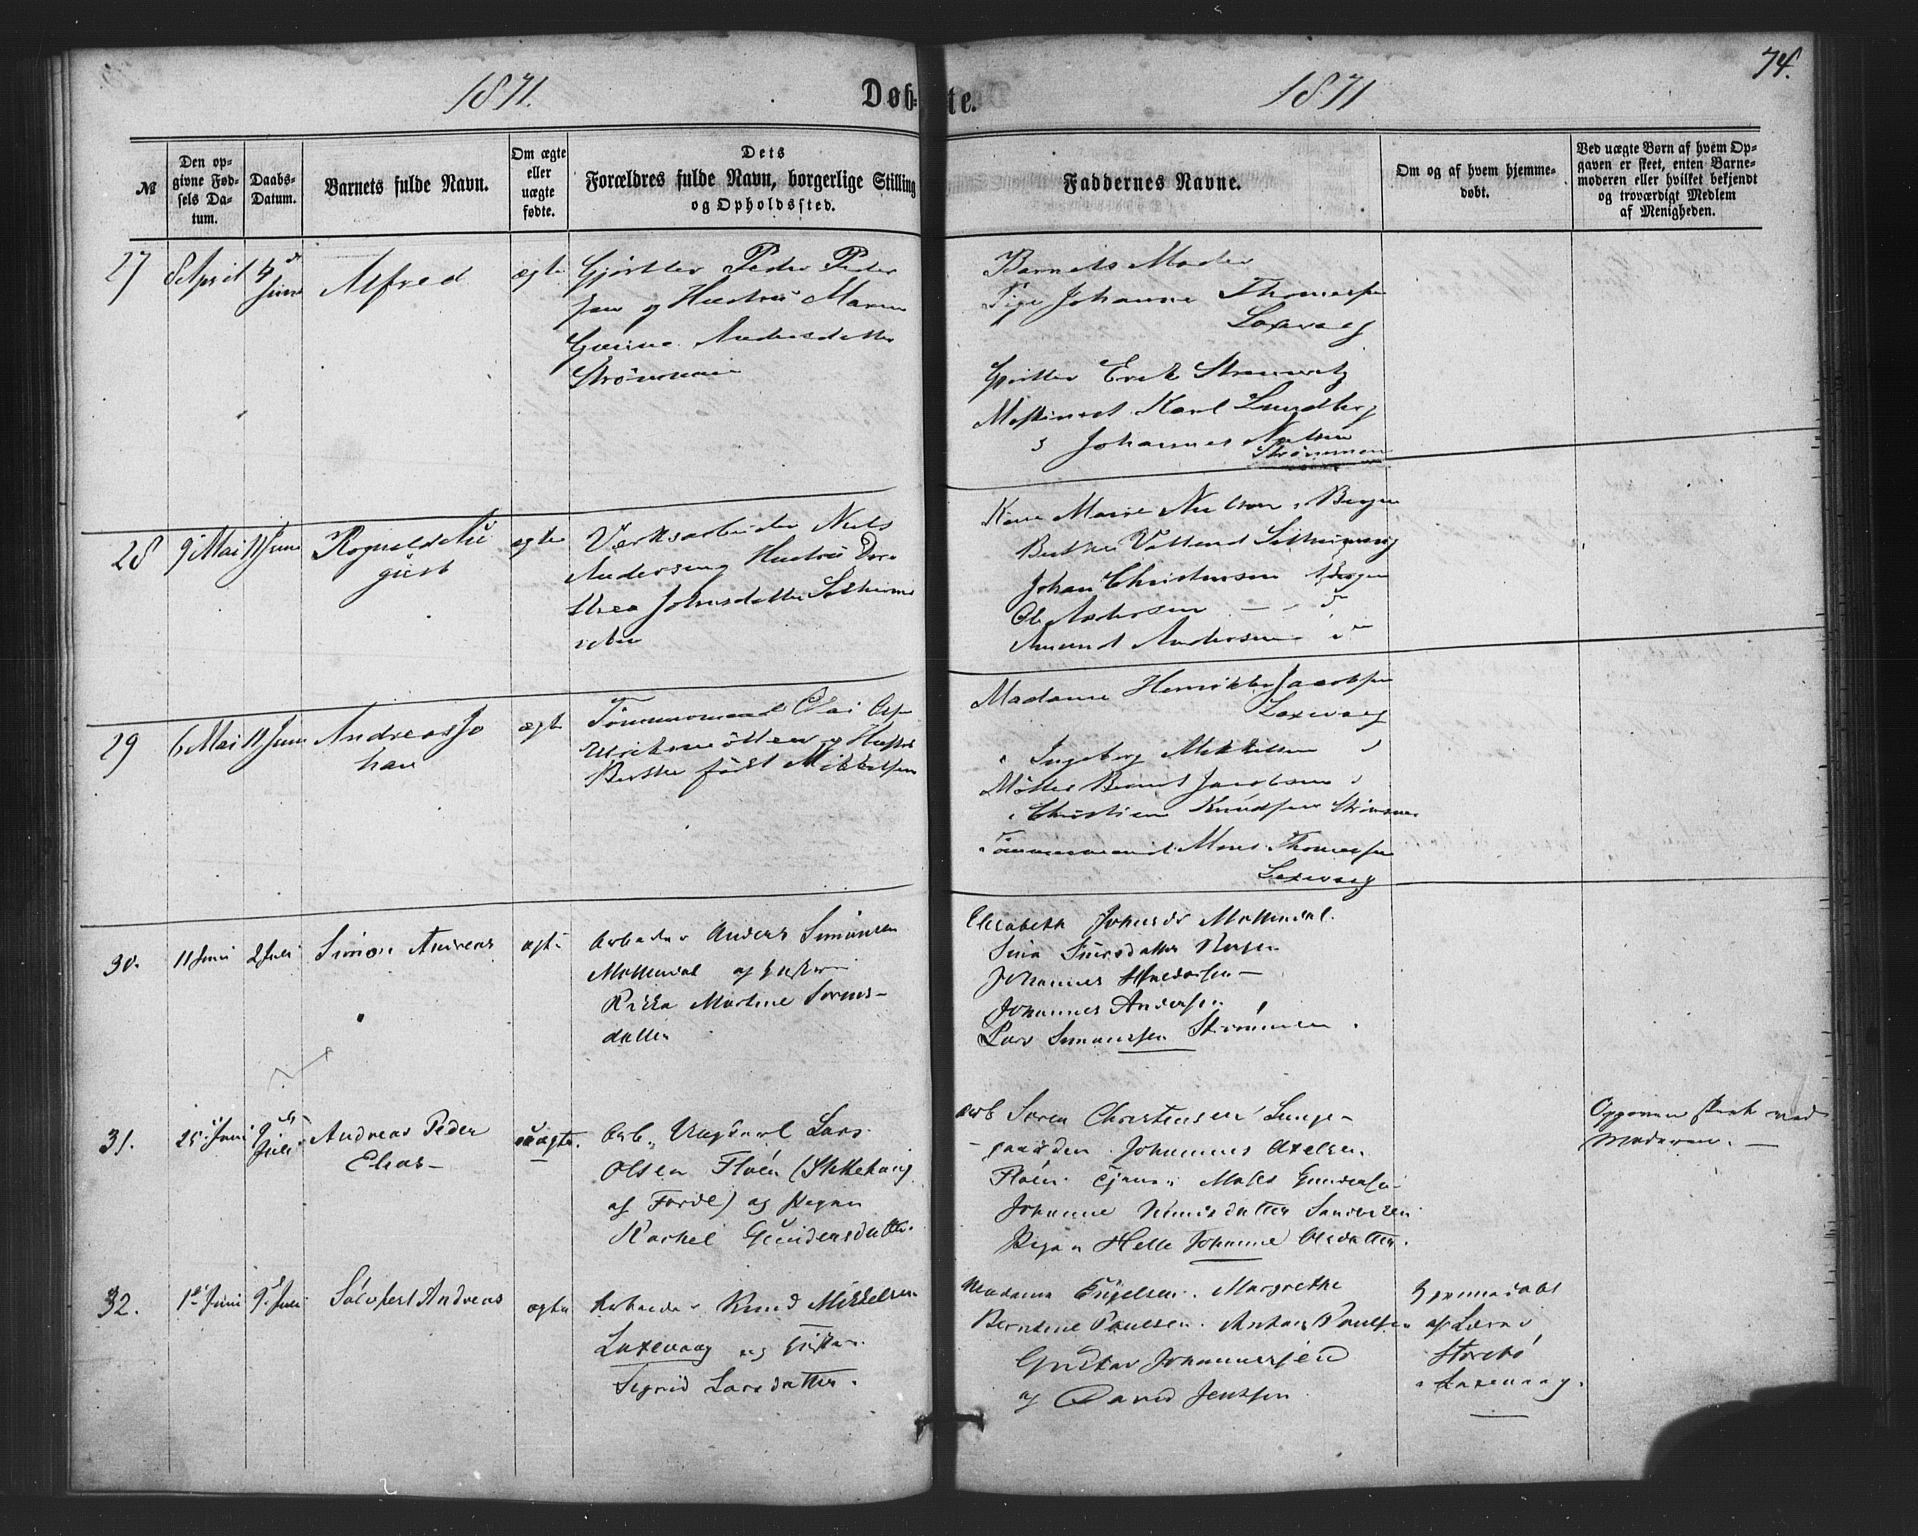 1871.
Døb-te.
1871
74.
№
Den op-
givne Fød-
sels Da-
tum.
Daabs-
Datum.
Barnets fulde Navn.
Om ægte
eller
uægte
fødte.
Dets
Forældres fulde Navn, borgerlige Stilling
og Opholdssted.
Faddernes Navne.
Om og af hvem hjemme-
døbt.
Ved uægte Børn af hvem Op-
gaven er skeet, enten Barne-
moderen eller hvilket bekjendt
og troværdigt Medlem
af Menigheden.
27
8 April
4 de
Juni
Alfred
ægte
Gjørtler Peder Peder
sen og Hustru Maren
Andersdatter
Strømmen
Barnets Moder
Pige Johanne Thomassen
Laxevaag
Gjørtler Erik
Karl Lundberg
Johannes Nielsen
Strømmen
28
9 Mai
11 Juni
Rognald Au
gust
ægte
Værksarbeider Niels
Andersen og Hustru Doro
thea Johnsdatter
Marie Nielsen, Bergen
Berthe
Johan Christensen Bergen
Ole Andersen
Amund Andersen
29
6 Mai
11 Juni
Andreas Jo
han
ægte
Tømmermand
og Hustru
Berthe født Mikkelsen
Madame Henrikke Jacobsen
Laxevaag
Ingeborg Mikkelsen
Bernt Jacobsen
Christian Knudsen Strømmen
Tømmermand Mons Thomassen
Laxevaag
30.
11 Juni
2 Juli
Simon Andreas
ægte
Arbeider Anders Simonsen
Møllendal og Hustru
Rikka Martine Sørens-
datter
Elisabeth Johnsdr Møllendal.
Sina Bergen
Johannes
Johannes Andersen
Lars Simonsen Strømmen.
31.
25 Juni
9 de
Juli
Andreas Peder
Elias-
uægte.
Arb. Ungkarl Lars
Olsen Fløen
af Førde) og Pigen
Rachel Gundersdatter.
Arb Søren Christensen Lunge-
gaarden. Johannes Axelsen
Fløen. Tjener Gundersen
Johanne Sandviken
Pigen Helle Johanne Olsdatter.
Opgaven skeet ved
Moderen. —
32.
1ste Juni
9 Juli
Sølvfest Andreas
ægte
Arbeider Knud Mikkelsen
Laxevaag og Hustru
Sigrid Larsdatter.
Madame Engelsen. Margrethe
Berntine Paulsen. Anton Paulsen
Gustav Johannessen
og David Jensen
Hjemmedøbt
af Lærer
Storebø
Laxevaag.